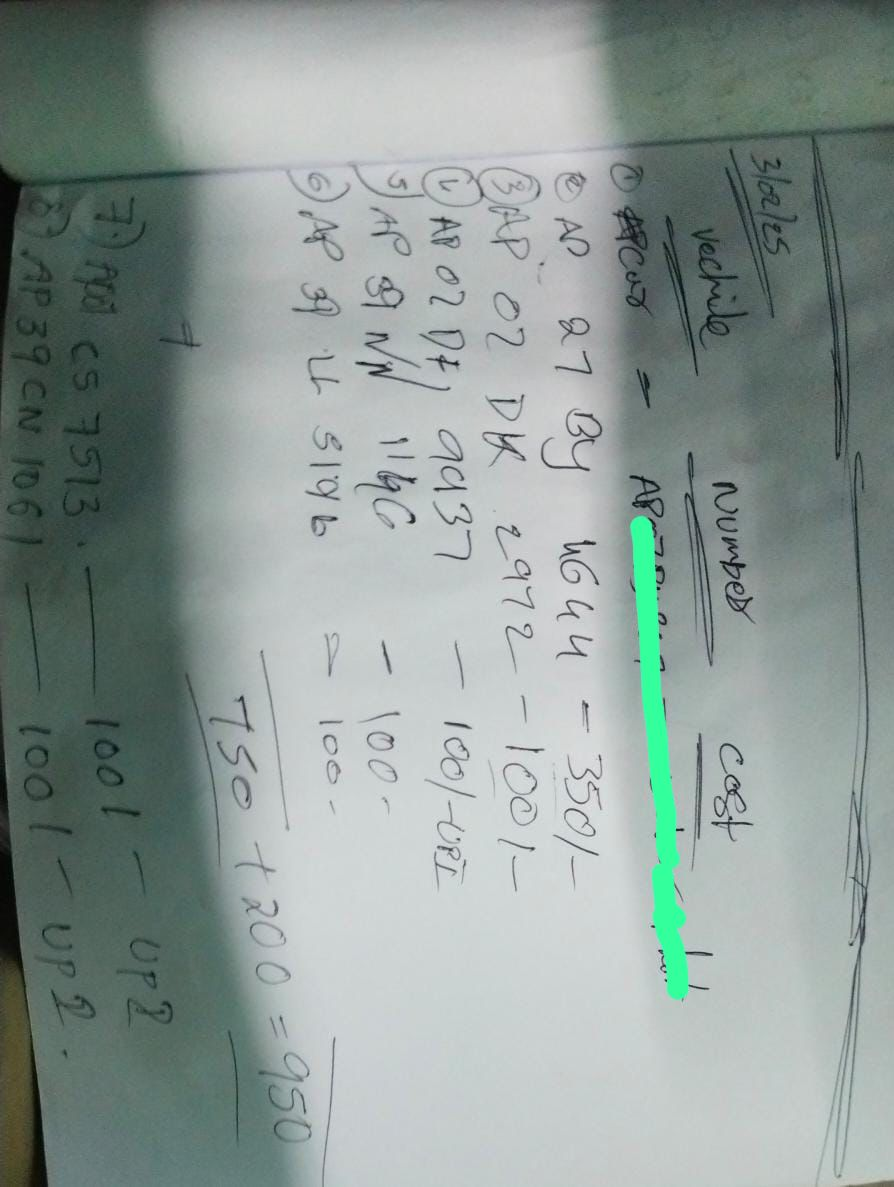 3/02/25
Vechile Number Cost
① Car = AP
② AP 27 By 4644 = 350/-
③ AP 02 DK 2972 - 100/-
④ AP 02 DH 9937 - 100/-UPI
5) AP 39 NN 1146 - 100-
6) AP 39 U 5196 = 100-
750 + 200 = 950
7.) AP CS 7513. — 100/ - UPI
8) AP 39 CN 1061 — 100/ - UPI.